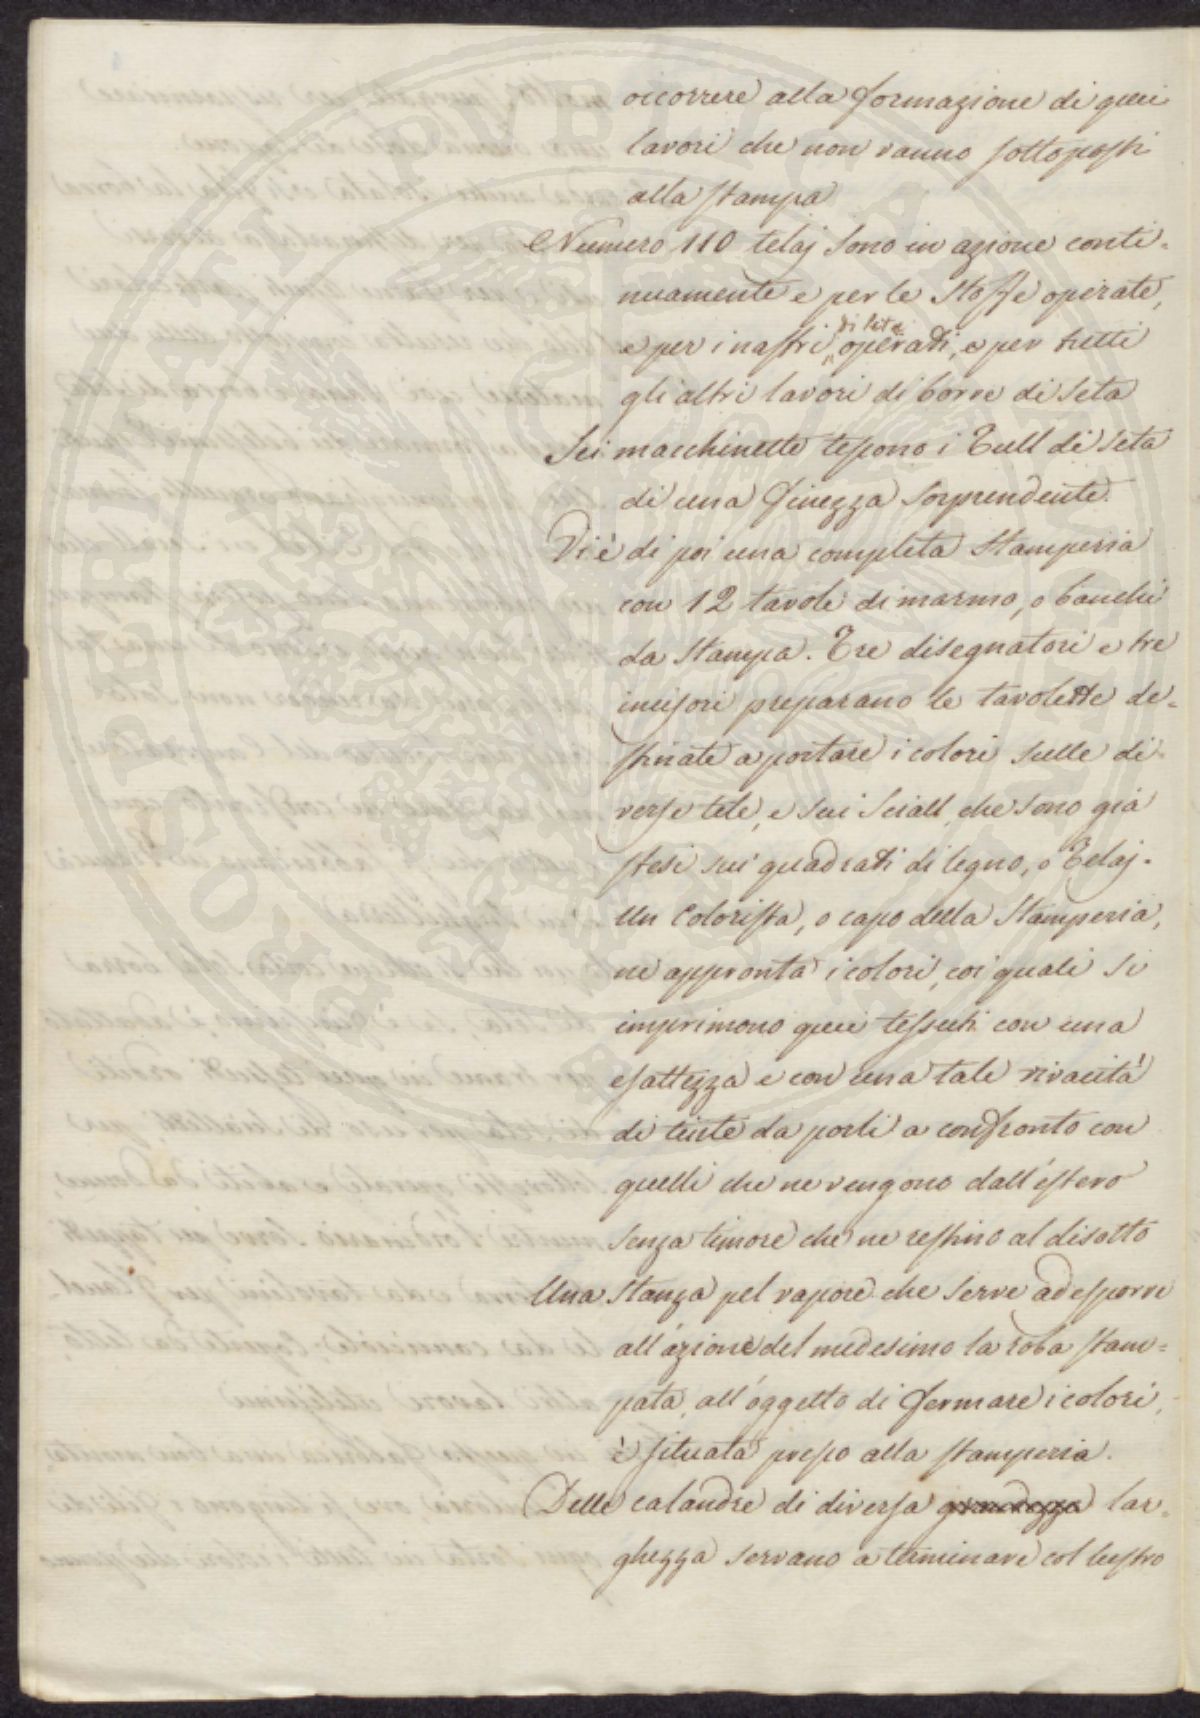 occorrere alla formazione di quei
lavori che non vanno sottoposti
alla stampa
Numero 110 telaj sono in azione conti-
nuamente e per le stoffe operate,
e per i nastri di seta operati, e per tutti
gli altri lavori di borre di seta
Sei macchinette tessono i Tull di seta
di una finezza sorprendente.
Vi è di poi una completa Stamperia
con 12 tavole di marmo, o banchi
da Stampa. Tre disegnatori e tre
incisori preparano le tavolette de-
stinate a portare i colori sulle di-
verse tele, e sui Sciall, che sono già
stesi sui quadrati di legno, o Telaj.
Un Colorista, o capo della Stamperia,
ne appronta i colori, coi quali si
imprimono quei tessuti con una
esattezza e con una tale vivacità
di tinte da porli a confronto con
quelli che ne vengono dall'estero
senza timore che ne restino al disotto
Una Stanza pel vapore che serve ad esporre
all'azione del medesimo la roba stam=
pata, all'oggetto di fermare i colori,
è situata presso alla stamperia.
Delle calandre di diversa grandezza lar-
ghezza servano a terminare col lustro
PVBLICA